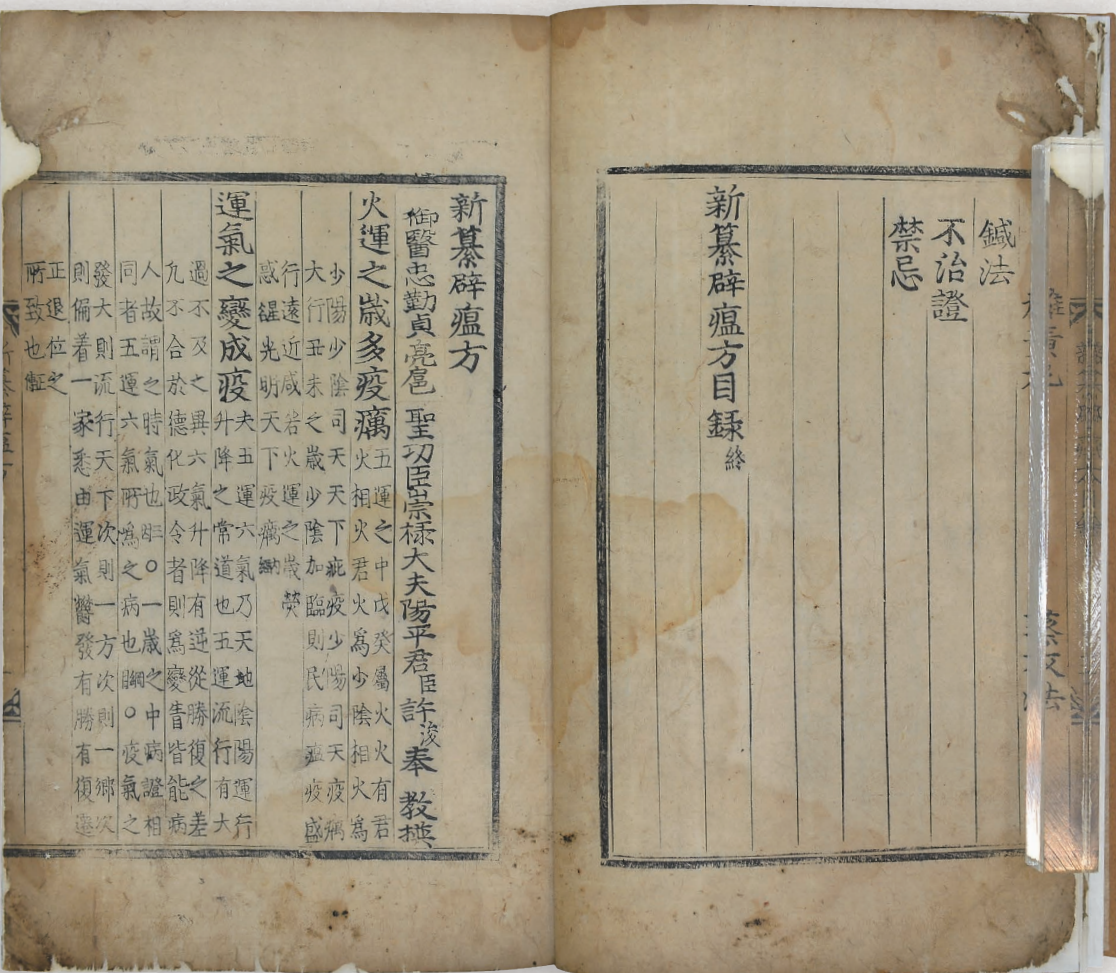 鍼法
不治證
禁忌
新纂辟瘟方目錄終
新纂辟瘟方
御醫忠勤貞亮扈聖功臣崇祿大夫陽平君臣許浚奉教撰
火運之歲多疫癘
五運之中戊癸屬火火有君
火相火君火爲少陰相火爲
少陽少陰司天天下疵疫少陽司天疫癘
大行丑未之歲少陰加臨則民病瘟疫盛
行遠近咸若火運之歲熒
惑光明天下疫癘
運氣之變成疫
夫五運六氣乃天地陰陽運行
升降之常道也五運流行有大
過不及之異六氣升降有逆從勝復之差
凡不合於德化政令者則爲變眚皆能病
人故謂之時氣也○一歲之中病證相
同者五運六氣所爲之病也○疫氣之
發大則流行天下次則一方次則一鄉次
則偏着一家悉由運氣鬱發有勝有復遷
正退位之
所致也